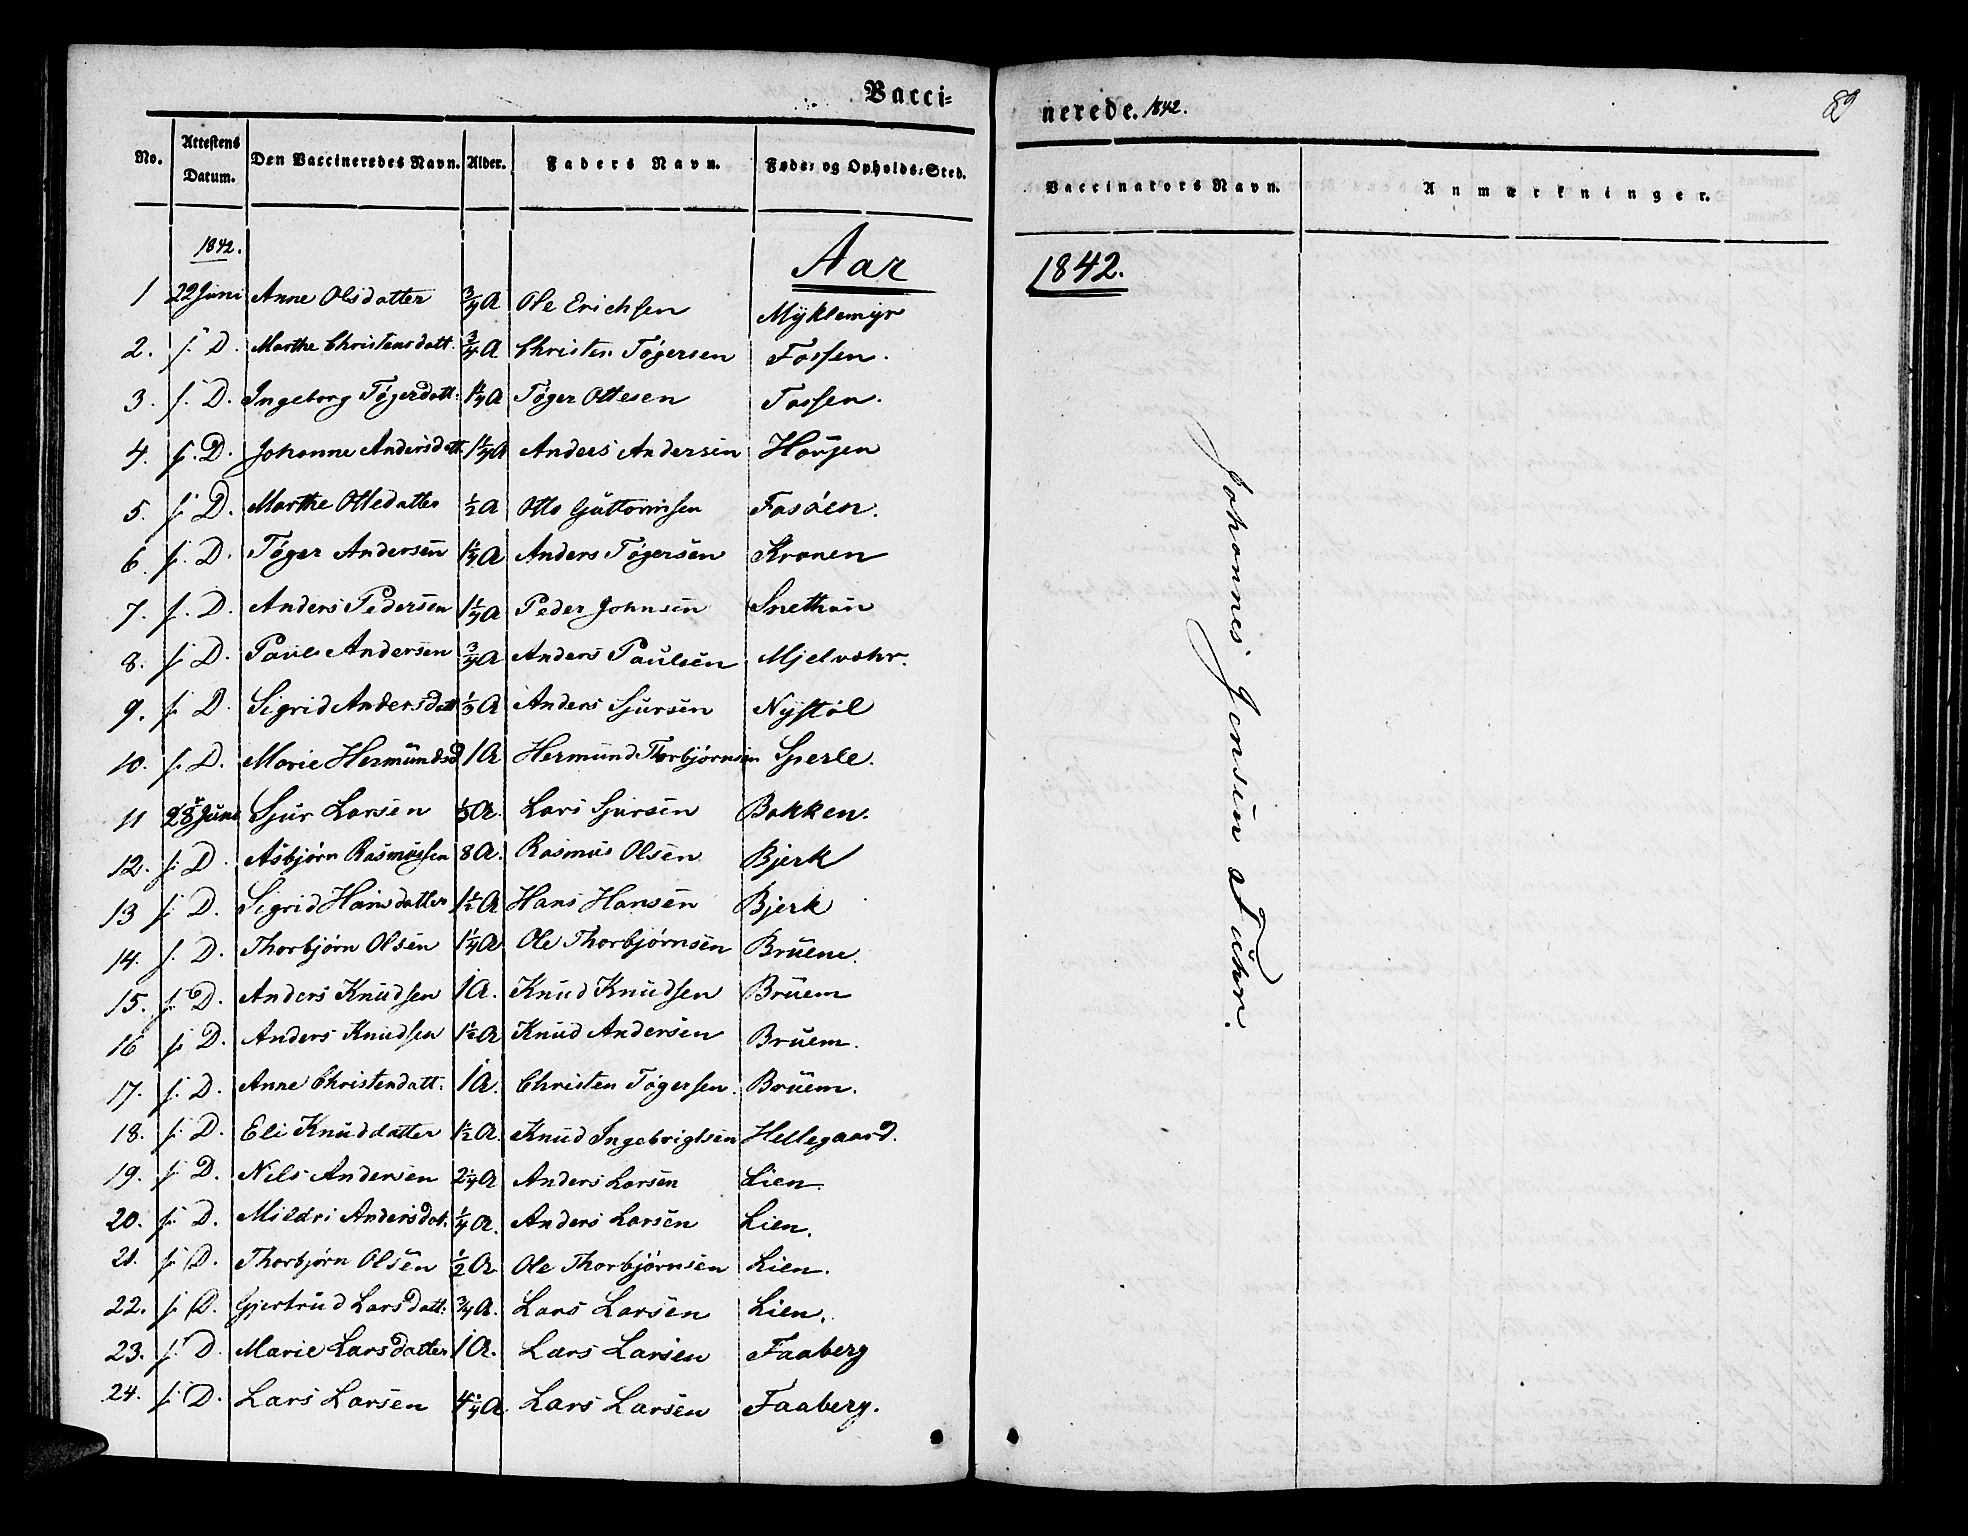 Vacci=
nerede. 1842.
89
No. Attestens Datum. Den Vaccineredes Navn. Alder. Faders Navn. Føde= og Opholds=Sted. Vaccinators Navn. Anmærkninger.
1842. Aar 1842.
1 22 Juni Anne Olsdatter 3/4 A Ole Erichsen Myklemyr
2. s: D. Marthe Christensdatt. 3/4 A Christen Tøgersen Fossen.
3. s. D. Ingeborg Tøgerdatt: 1 1/4 A Tøger Ottesen Fossen.
4. s. D. Johanne Andersdatt. 1 1/4 A Anders Andersen Haugen
5. s: D. Marthe Ottedatter 1/2 A Otto Guttormsen Fosøen.
6. s: D. Tøger Andersen 1 1/4 A Anders Tøgersen Kronen
7. s. D. Anders Pedersen 1 1/4 A Peder Johnsen Snethun
8. s: D. Paul Andersen 3/4 A Anders Paulsen Mjelvahr.
9. s: D. Sigrid Andersdatt 1/3 A Anders Sjursen Nystøl
10. s: D. Marie Hermundsd 1 A Hermund Thorbjørnsen Sperle.
11 28 Juni Sjur Larsen 1/3 A. Lars Sjursen Bakken.
12. s: D. Asbjørn Rasmussen 8 A. Rasmus Olsen Bjerk
13 s: D. Sigrid Hansdatter 1 1/2 A Hans Hansen Bjerk
14. s. D. Thorbjørn Olsen 1 1/4 A Ole Thorbjørnsen Bruem.
15. s: D. Anders Knudsen 1 A. Knud Knudsen Bruem
16 s: D. Anders Knudsen 1 1/2 A Knud Andersen Bruem.
17. s: D. Anne Christendatt. 1 A. Christen Tøgersen. Bruem.
18. s: D. Eli Knuddatter 1 1/2 A. Knud Ingebrigtsen Hellegaard.
19. s: D. Nils Andersen 2 1/4 A Anders Larsen Lien.
20. s: D. Mildri Andersdat. 1/4 A. Anders Larsen Lien.
21. s: D. Thorbjørn Olsen 1/2 A Ole Thorbjørnsen Lien.
22. s: D. Gjertrud Larsdatt: 3/4 A. Lars Larsen Lien.
23. s: D. Marie Larsdatter 1 A. Lars Larsen Faaberg
24. s: D. Lars Larsen 4 1/4 A. Lars Larsen Faaberg.
Johannes Jensen Fuhr.